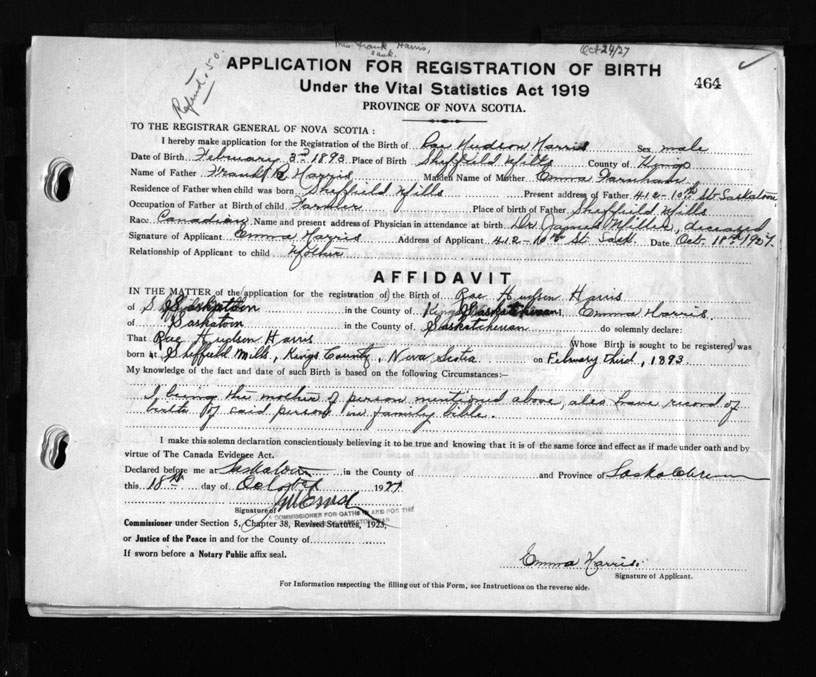 Mrs. Frank Harris,
Sask.
Oct 24/27
Refund .50
APPLICATION FOR REGISTRATION OF BIRTH
464
Under the Vital Statistics Act 1919
PROVINCE OF NOVA SCOTIA.
TO THE REGISTRAR GENERAL OF NOVA SCOTIA:
I hereby make application for the Registration of the Birth of Rae Hudson Harris Sex male
Date of Birth February 3rd 1893 Place of Birth Sheffield Mills County of Kings
Name of Father Frank Harris Maiden Name of Mother Emma
Residence of Father when child was born Sheffield Mills Present address of Father 412-10th St Saskatoon
Occupation of Father at Birth of child Farmer Place of birth of Father Sheffield Mills
Race Canadian Name and present address of Physician in attendance at birth Dr James Miller, deceased
Signature of Applicant Emma Harris Address of Applicant 412-10th St. Sask. Date Oct. 18th 1927.
Relationship of Applicant to child Mother
AFFIDAVIT
IN THE MATTER of the application for the registration of the Birth of Rae Hudson Harris
of Saskatoon in the County of Kings Saskatchewan I, Emma Harris
of Saskatoon in the County of Saskatchewan do solemnly declare:
That Rae Hudson Harris (Whose Birth is sought to be registered) was
born at Sheffield Mills, Kings County, Nova Scotia on February third, 1893
My knowledge of the fact and date of such Birth is based on the following Circumstances:—
I being the mother of person mentioned above, also have record of
birth of said person in family bible.
I make this solemn declaration conscientiously believing it to be true and knowing that it is of the same force and effect as if made under oath and by
virtue of The Canada Evidence Act.
Declared before me at Saskatoon in the County of and Province of Saskatchewan
this 18th day of October 1927
Signature of
A COMMISSIONER FOR OATHS IN AND FOR THE
Commissioner under Section 5, Chapter 38, Revised Statutes, 1923,
or Justice of the Peace in and for the County of
If sworn before a Notary Public affix seal.
Emma Harris
Signature of Applicant.
For Information respecting the filling out of this Form, see Instructions on the reverse side.